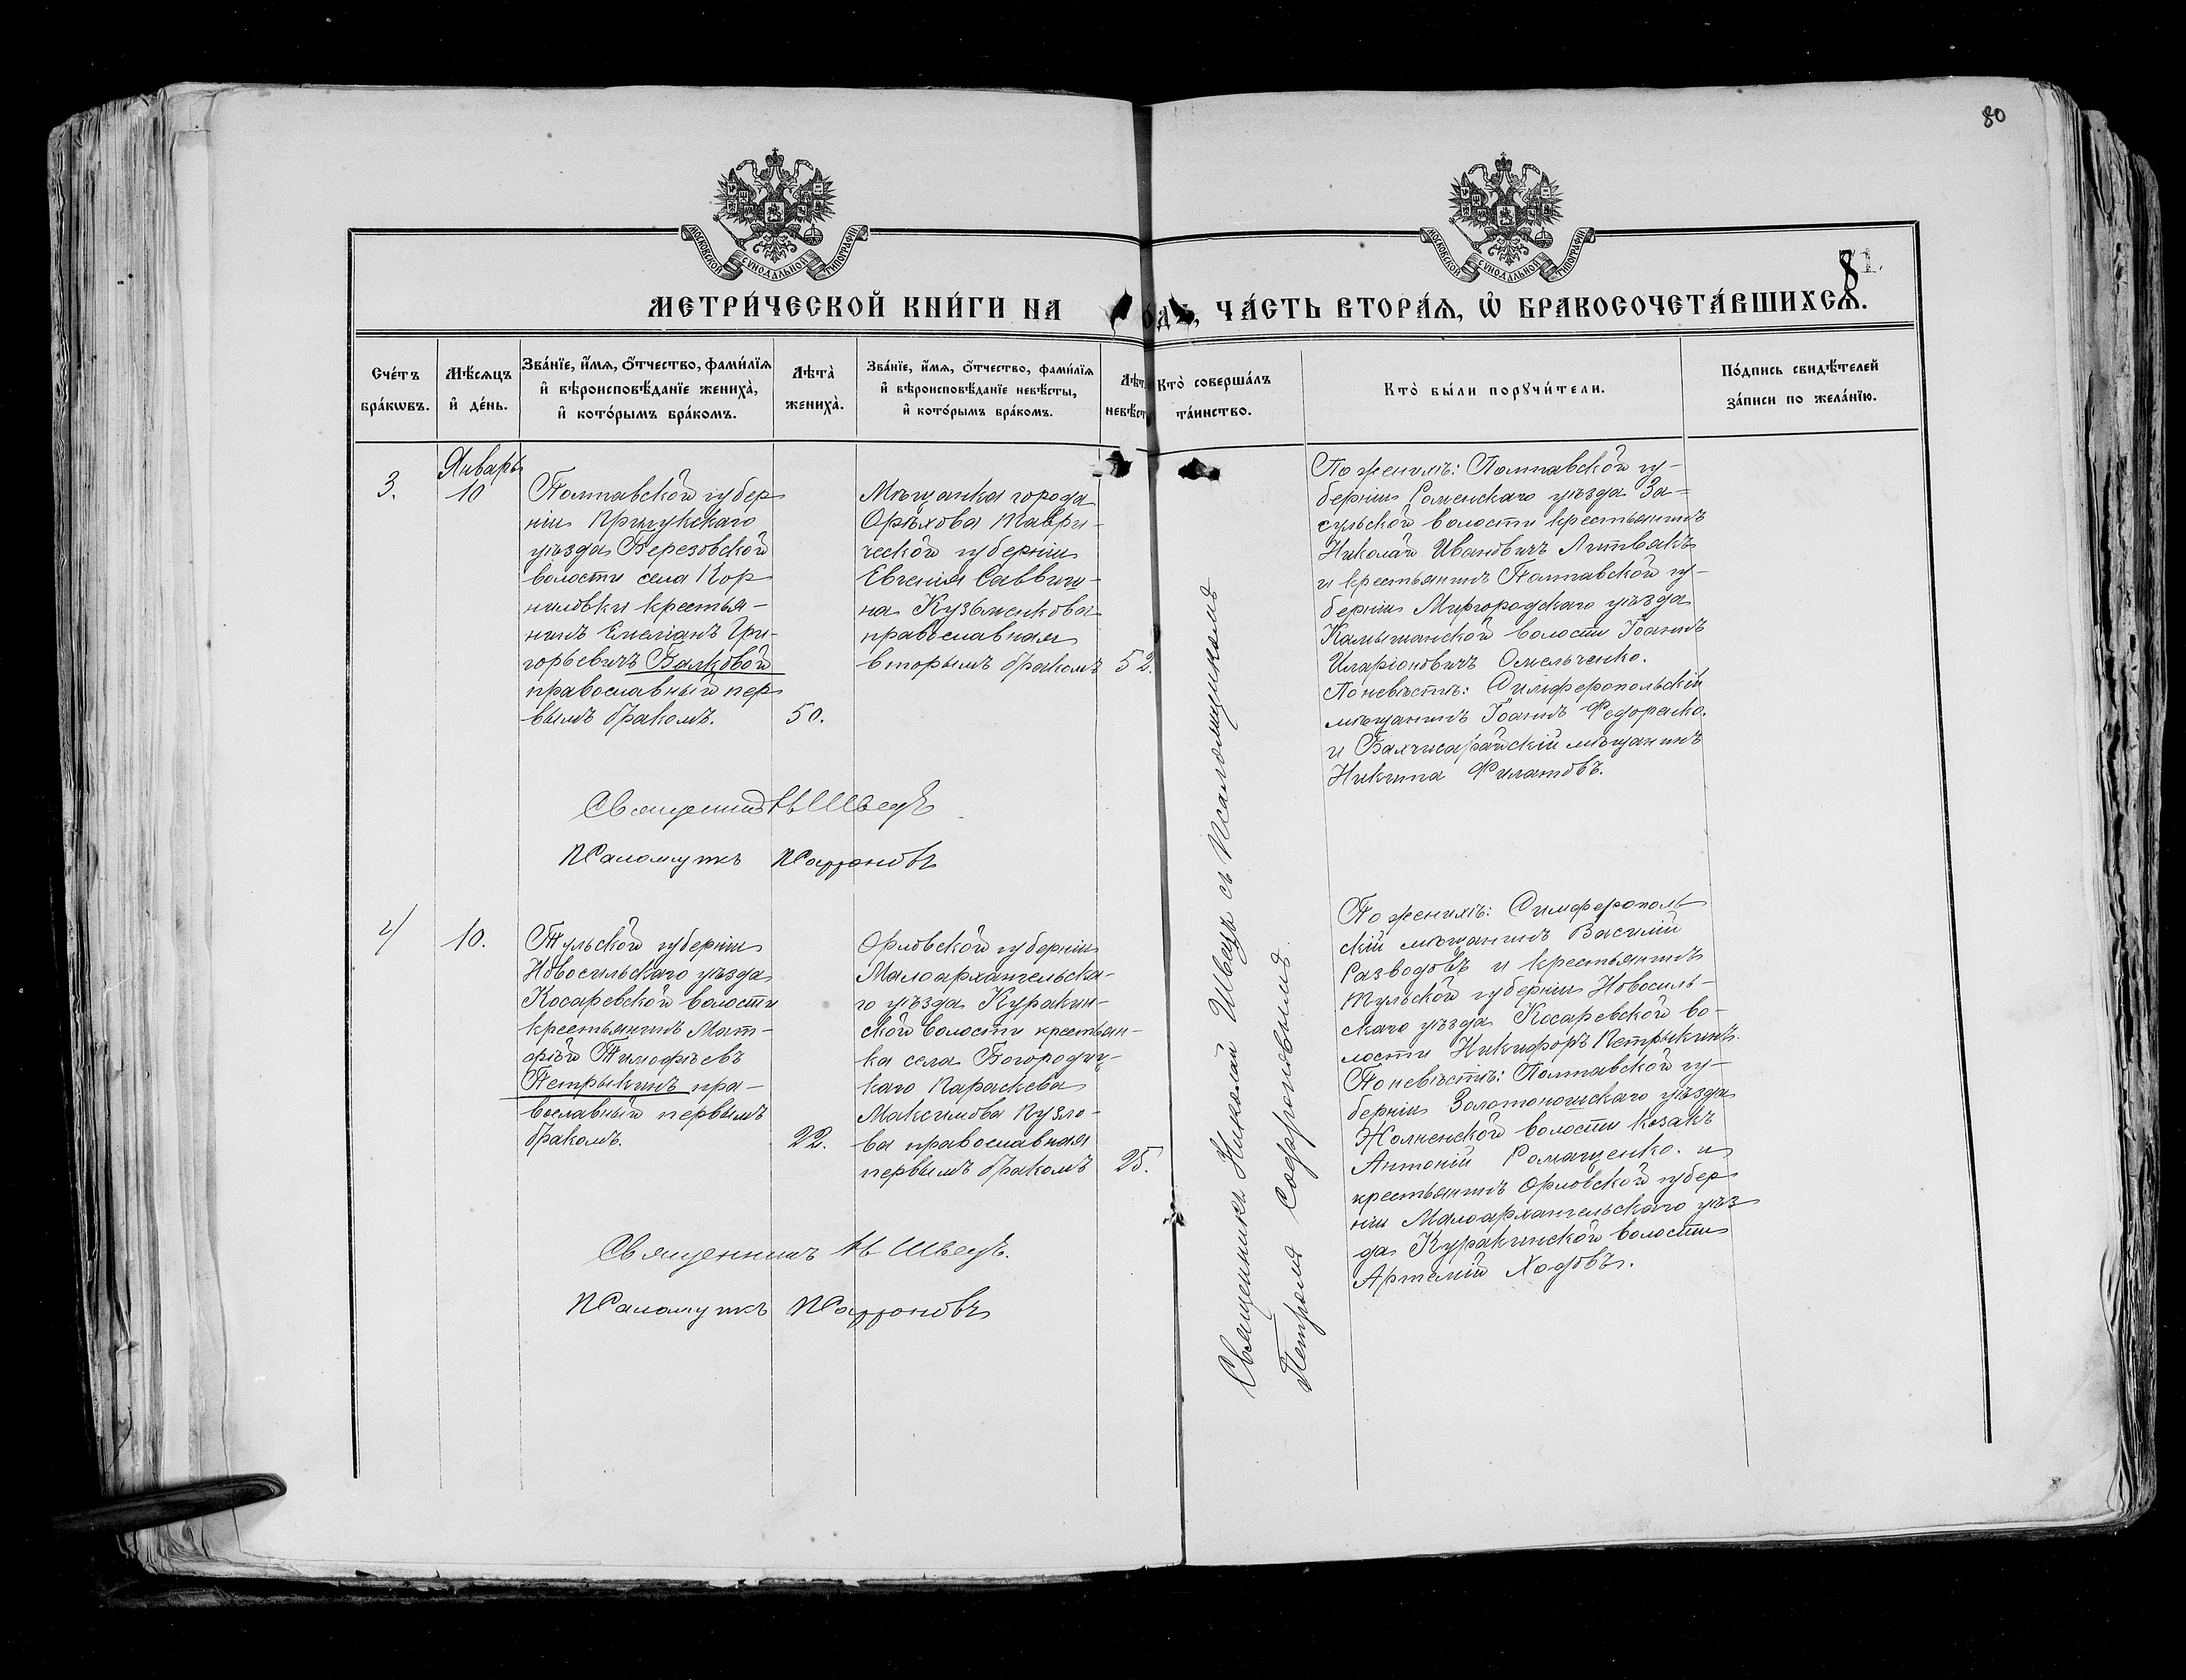 80
МОСКОВСКОЙ СУНОДАЛЬНОЙ ТИПОГРАФІИ
МОСКОВСКОЙ СУНОДАЛЬНОЙ ТИПОГРАФІИ
МЕТРИ́ЧЕСКОЙ КНИ́ГИ НА
ЧА́СТЬ ВТОРА́Я, Ѡ БРАКОСОЧЕТА́ВШИХСЯ.
Сче́тъ
бра́кѡвъ.
Мѣ́сяцъ
и҆ де́нь.
Зва́нїе, и҆́мя, ѻ҆́тчество, фами́лїя
и҆ вѣроисповѣ́данїе жениха̀,
и҆ кото́рымъ бра́комъ.
Лѣта̀
жениха̀.
Зва́нїе, и҆́мя, ѻ҆́тчество, фами́лїя
и҆ вѣроисповѣ́данїе невѣ́сты,
и҆ кото́рымъ бра́комъ.
Кто̀ соверша́лъ
та́инство.
Кто̀ бы́ли порꙋчи́тели.
По́дпись свидѣ́телей
за́писи по жела́нїю.
3.
Январь
10
Полтавской губер
ніи Прилукскаго
уѣзда Березовской
волости села Кор
ниловки крестья-
нинъ Емеліанъ Гри-
горьевичъ Балковой
православный пер
вымъ бракомъ.
50.
Мѣщанка города
Орѣхова Таври-
ческой губерніи
Евгенія Саввиш-
на Кузьменкова
православная
вторымъ бракомъ
52.
По женихѣ: Полтавской гу-
берніи Роменскаго уѣзда За-
сульской волости крестьянинъ
Николай Ивановичъ Литвякъ
и крестьянинъ Полтавской гу-
берніи Миргородскаго уѣзда
Камышанской волости Іоаннъ
Иларіоновичъ Омельченко.
По невѣстѣ: Симферопольскій
мѣщанинъ Іоаннъ Федоренко.
и Бахчисарайскій мѣщанинъ
Никита Филатовъ.
Священникъ Н Швецъ
Псаломщикъ ПСофроновъ
4
10.
Тульской губерніи
Новосильскаго уѣзда
Косаревской волости
крестьянинъ Мат-
ѳей Тимофѣевъ
Петрыкинъ пра-
вославный первымъ
бракомъ.
22.
Орловской губерніи
Малоархангельска-
го уѣзда Куракин-
ской волости крестьян-
ка села Богородиц-
каго Параскева
Максимова Кузло-
ва православная
первымъ бракомъ
25.
Священникъ Николай Швецъ съ Псаломщикомъ
Петромъ Софроновымъ
По женихѣ: Симферополь
скій мѣщанинъ Василій
Разводовъ и крестьянинъ
Тульской губерніи Новосиль-
скаго уѣзда Косаревской во-
лости Никифоръ Петрыкинъ.
По невѣстѣ: Полтавской гу-
берніи Золотоношскаго уѣзда
Жолненской волости козакъ
Антоній Ромащенко. и
крестьянинъ Орловской губер
ніи Малоархангельскаго уѣз
да Куракинской волости
Артемій Ходовъ.
Священникъ Н Швецъ.
Псаломщикъ ПСофроновъ